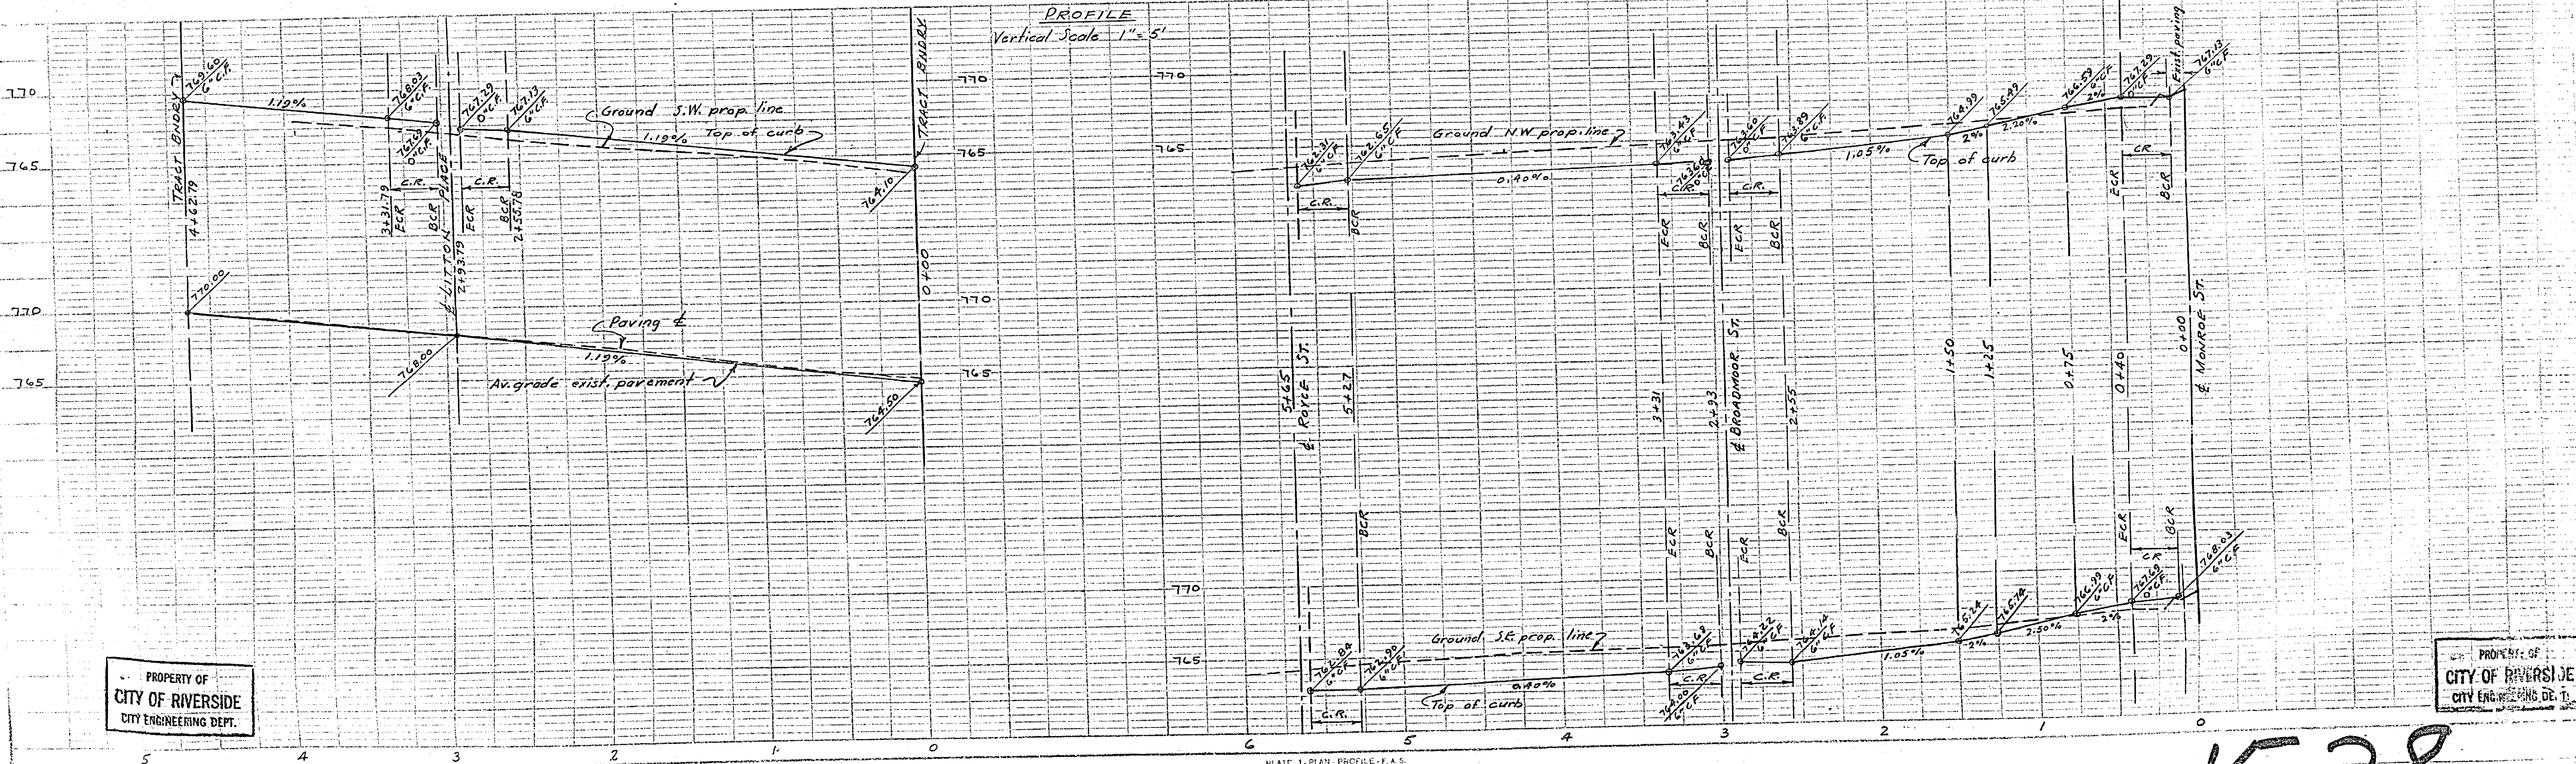 PROFILE
Vertical Scale 1"=5'
770
765
TRACT BNDRY.
4+62.79
769.60
6"C.F.
1.19%
768.03
6"C.F.
767.69
0"C.F.
767.29
0"C.F.
767.13
6"C.F.
Ground S.W. prop. line
1.19%
Top of curb
3+31.79
ECR
C.R.
BCR
℄ LITTON PLACE
2+93.79
ECR
C.R.
BCR
2+55.78
764.10
TRACT BNDRY.
0+00
770
765
770
765
770.00
768.00
Paving ℄
1.19%
Av. grade exist. pavement
764.50
770
765
770
765
762.31
6"C.F.
762.65
6"C.F.
Ground N.W. prop. line
0.40%
763.43
6"C.F.
763.68
0"C.F.
763.60
0"C.F.
763.89
6"C.F.
1.05%
Top of curb
764.99
2%
765.49
2.20%
766.59
6"C.F.
2%
767.29
0"C.F.
Exist. paving
767.13
6"C.F.
C.R.
BCR
ECR
C.R.
BCR
ECR
C.R.
BCR
ECR
C.R.
BCR
5+65
℄ ROYCE ST.
5+27
3+31
2+93
℄ BROADMOOR ST.
2+55
1+50
1+25
0+75
0+40
0+00
℄ MONROE ST.
BCR
ECR
BCR
ECR
BCR
ECR
C.R.
BCR
770
765
762.84
6"C.F.
762.90
6"C.F.
Ground S.E. prop. line
0.40%
Top of curb
C.R.
763.69
6"C.F.
C.R.
764.00
6"C.F.
764.22
6"C.F.
C.R.
764.14
6"C.F.
1.05%
765.24
2%
765.74
2.50%
766.99
6"C.F.
2%
767.69
0"C.F.
768.03
6"C.F.
PROPERTY OF
CITY OF RIVERSIDE
CITY ENGINEERING DEPT.
PROPERTY OF
CITY OF RIVERSIDE
CITY ENGINEERING DEPT.
5 4 3 2 1 0 6 5 4 3 2 1 0
PLATE 1-PLAN-PROFILE-F.A.S.